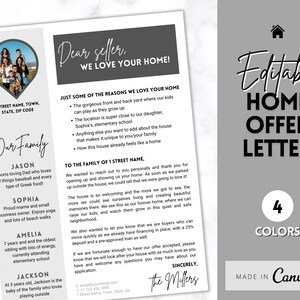 STREET NAME, TOWN,
STATE, ZIP CODE
Our Family
JASON
Sports loving Dad who loves
things baseball and every
type of Greek food!
SOPHIA
Proud mama and small
business owner. Enjoys yoga
and lots of beach walks
AMELIA
7 years and the oldest
sibling with lots of energy
currently attending
elementary school
JACKSON
At 3 years old, Jackson is the
baby of the family who loves
playing outside
Dear seller,
WE LOVE YOUR HOME!
JUST SOME OF THE REASONS WE LOVE YOUR HOME
The gorgeous front and back yard where our kids
can play as they grow up
The location is super close to our daughter,
Sophia's, elementary school
Anything else you want to add about the house
that makes it unique to you/your family
How this house already feels like a home
TO THE FAMILY OF 1 STREET NAME,
We wanted to reach out to you personally and thank you for
opening up and showing us your home. As soon as we parked
up outside the house, we could feel that we were going to love it!
The house is so welcoming and the more we got to see, the
more we could see ourselves living and creating beautiful
memories there. We see this as our forever home, where we can
raise our kids, and watch them grow in this quiet and safe
neighborhood.
We also wanted to let you know that we are buyers who can
move quickly as we already have financing in place, with a 25%
deposit and a pre-approved loan as well.
If we are fortunate enough to have our offer accepted, please
know that we will look after your house with as much love as you
have and welcome any questions you may have about our
application.
SINCERELY,
the Millers
Editable
HOME
OFFER
LETTER
4
COLORS
MADE IN
Canva